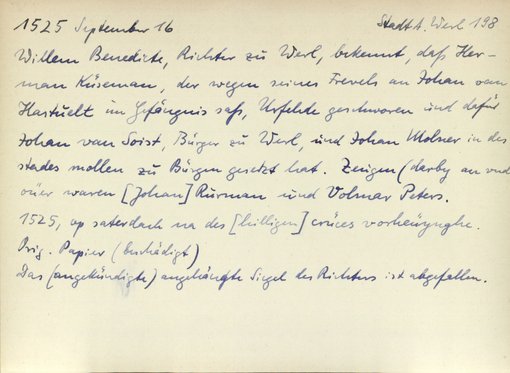 1525 September 16 Stadt A. Werl 198
Willem Benedicte, Richter zu Werl, bekennt, daß Her-
man Küseman, der wegen seines Frevels an Johan van
Hastuelt im Gefängnis saß, Urfehde geschworen und dafür
Johan van Soist, Bürger zu Werl, und Johan Molner in des
stades mollen zu Bürgen gesetzt hat. Zeugen (darby an vnd
oüer waren [Johan] Rurman und Volmar Peters.
1525, op saterdach na des [hilligen] crüces vorheüynghe.
Orig. Papier (beschädigt)
Das (angekündigte) angehängte Siegel des Richters ist abgefallen.